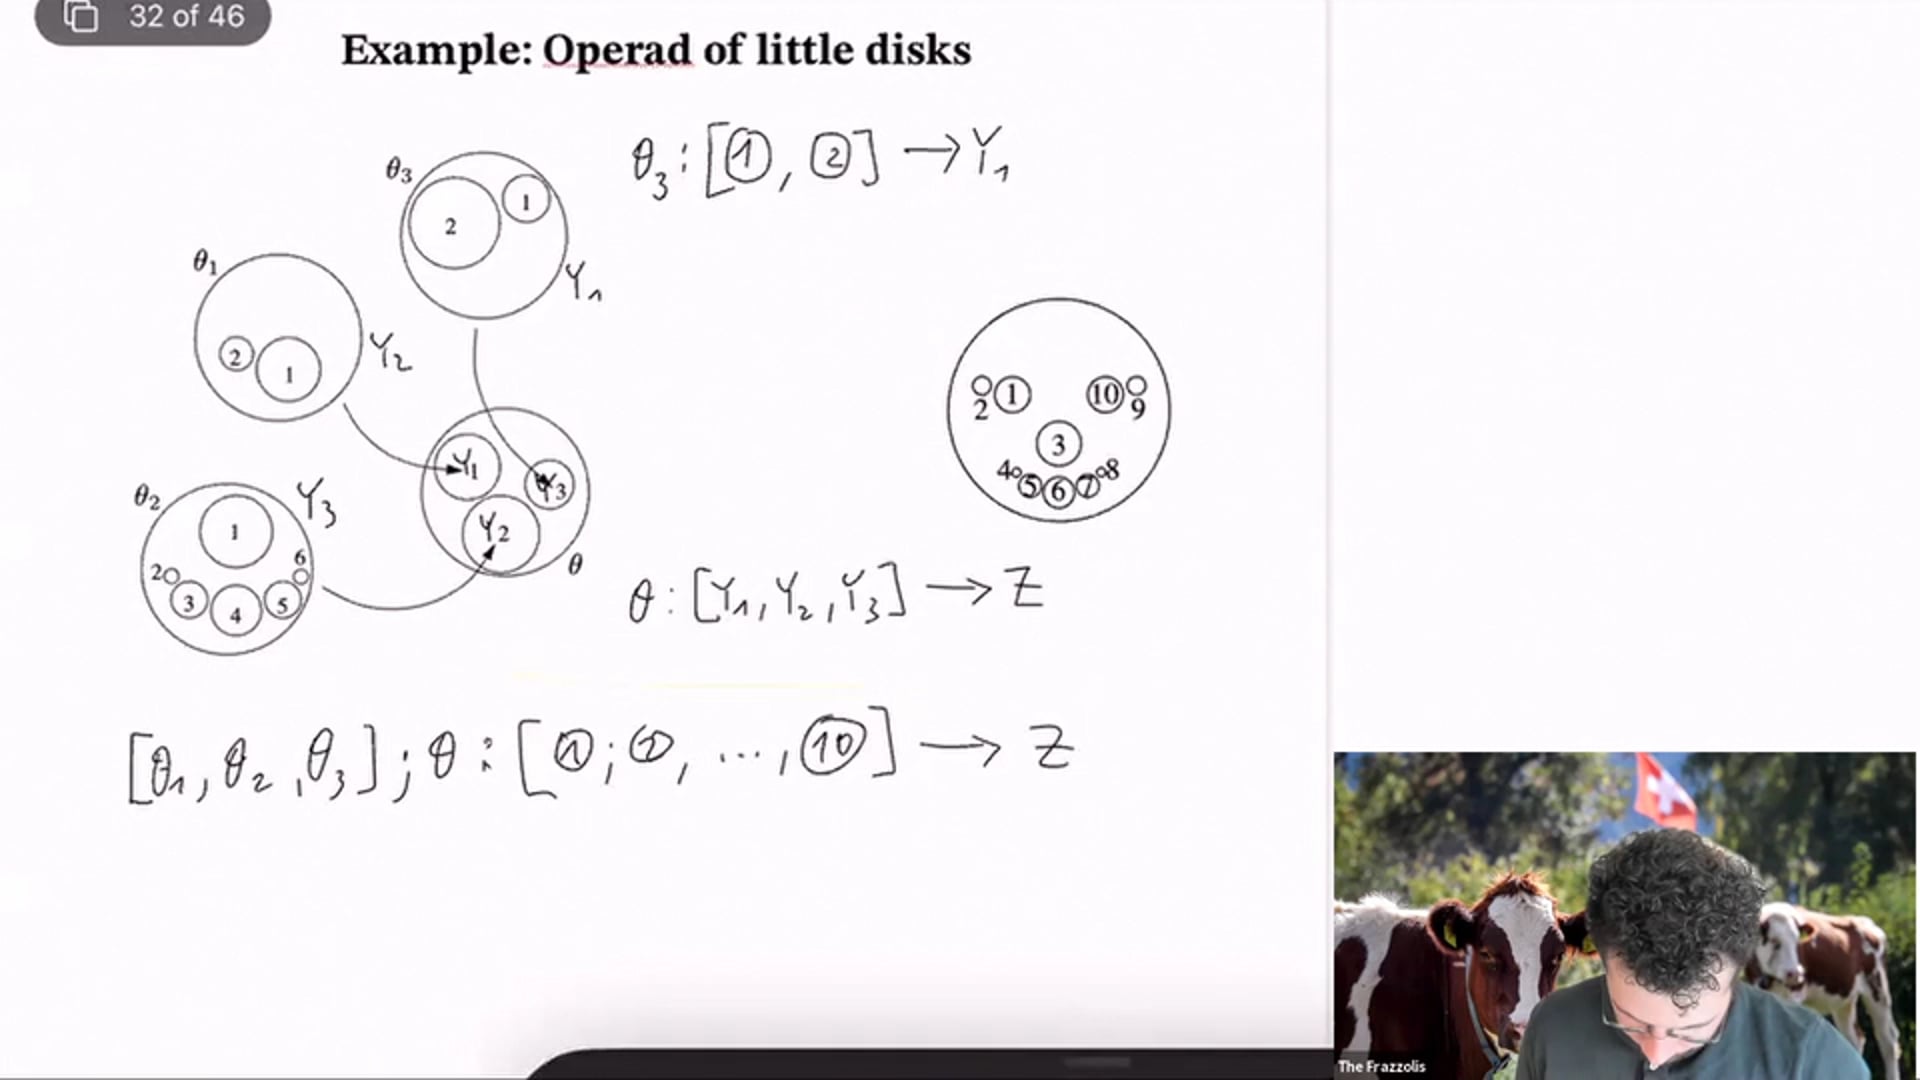 32 of 46
Example: Operad of little disks
θ₃ : [①, ②] → Y₁
θ₃
2
1
Y₁
θ₁
2
1
Y₂
θ₂
Y₃
1
2
3
4
5
6
Y₁
Y₃
Y₂
θ
2
1
10
9
3
4
5
6
7
8
θ : [Y₁, Y₂, Y₃] → Z
[θ₁, θ₂, θ₃] ; θ : [①; ②, ..., ⑩] → Z
The Frazzolis